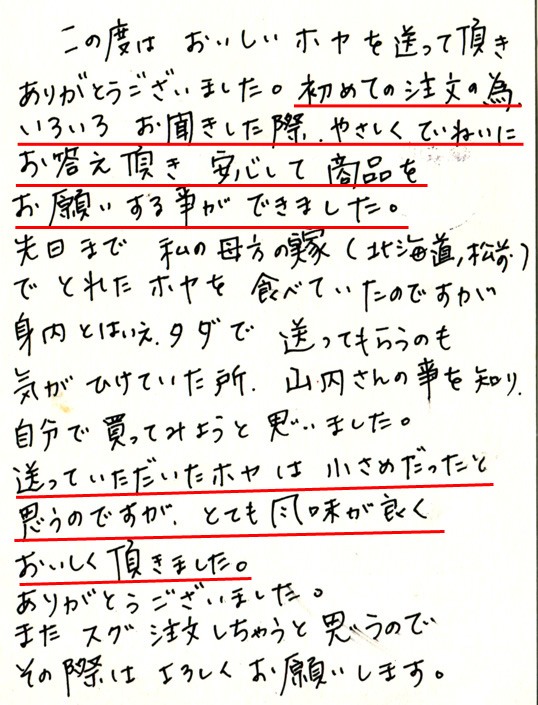 この度は おいしい ホヤを送って頂き
ありがとうございました。初めての注文の為、
いろいろ お聞きした際、やさしくていねいに
お答え頂き 安心して 商品を
お願いする事が できました。
先日まで 私の母方の実家(北海道、松前)
で とれた ホヤを 食べていたのですが
身内とはいえ、タダで 送ってもらうのも
気が ひけていた所、山内さんの事を知り、
自分で 買ってみようと 思いました。
送っていただいたホヤは 小さめだったと
思うのですが、とても風味が良く
おいしく 頂きました。
ありがとうございました。
また スグ 注文しちゃうと 思うので
その際は よろしく お願いします。